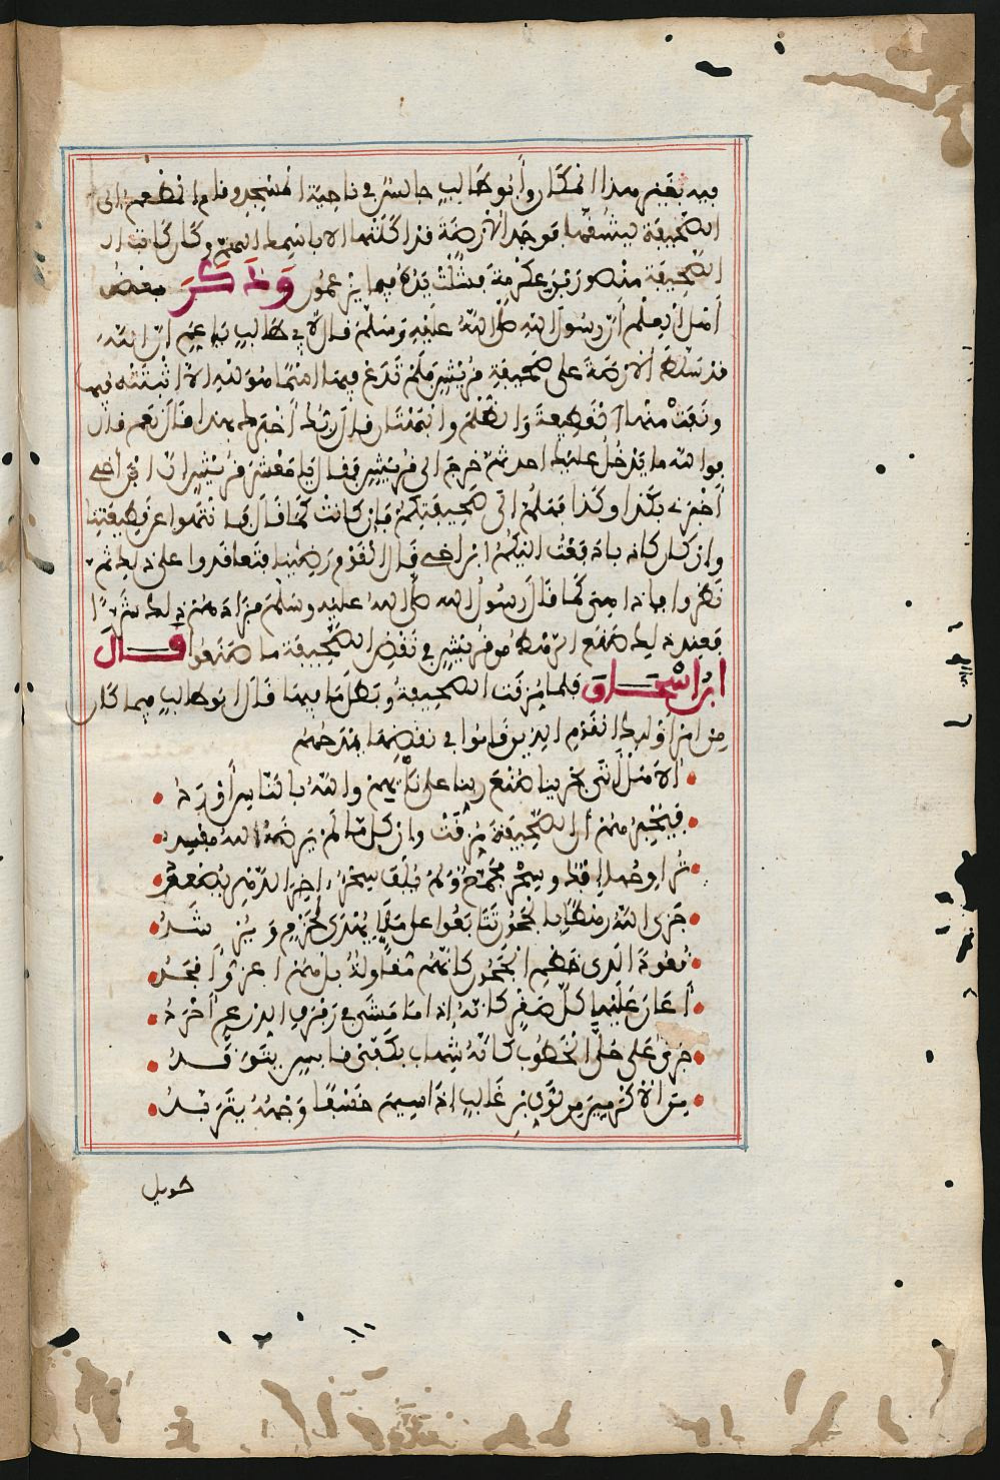 فيه بغير هذا المكان وأبو طالب جالس في ناحية المسجد وقام المطعم إلى
الصحيفة ليشقها فوجد الأرضة قد أكلتها إلا باسمك اللهم وكان كاتب
الصحيفة منصور بن عكرمة فشلت يده فيما يزعمون وذكر بعض
أهل العلم أن رسول الله صلى الله عليه وسلم قال لأبي طالب يا عم إن الله
قد سلط الأرضة على صحيفة قريش فلم تدع فيها اسما هو لله إلا أثبتته فيها
ونفت منها القطيعة والظلم والبهتان قال أربك أخبرك بهذا قال نعم قال
فوالله ما يدخل عليك أحد ثم خرج إلى قريش فقال يا معشر قريش إن ابن أخي
أخبرني بكذا وكذا فهلم إلى صحيفتكم فإن كانت كما قال فانتهوا عن قطيعتنا
وإن كان كاذبا دفعت إليكم ابن أخي قال القوم رضينا فتعاقدوا على ذلك ثم
نظروا فإذا هي كما قال رسول الله صلى الله عليه وسلم فزادهم ذلك شرا
فعند ذلك صنع الرهط من قريش في نقض الصحيفة ما صنعوا قال
ابن إسحاق فلما مزقت الصحيفة وبطل ما فيها قال أبو طالب فيما كان
من أمر أولئك القوم الذين قاموا في نقضها يمدحهم
ألا هل أتى بحرينا صنع ربنا على نأيهم والله بالناس أرود
فيخبرهم أن الصحيفة مزقت وأن كل ما لم يرضه الله مفسد
تراوحها إفك وسحر مجمع ولم يلف سحر آخر الدهر يصعد
جزى الله رهطا بالحجون تتابعوا على ملإ يهدي لحزم ويرشد
قعودا لدى خطم الحجون كأنهم مقاولة بل هم أعز وأمجد
أعان عليها كل صقر كأنه إذا ما مشى في رفرف الدرع أحرد
جري على جلى الخطوب كأنه شهاب بكفي قابس يتوقد
من الأكرمين من لؤي بن غالب إذا سيم خسفا وجهه يتربد
طويل